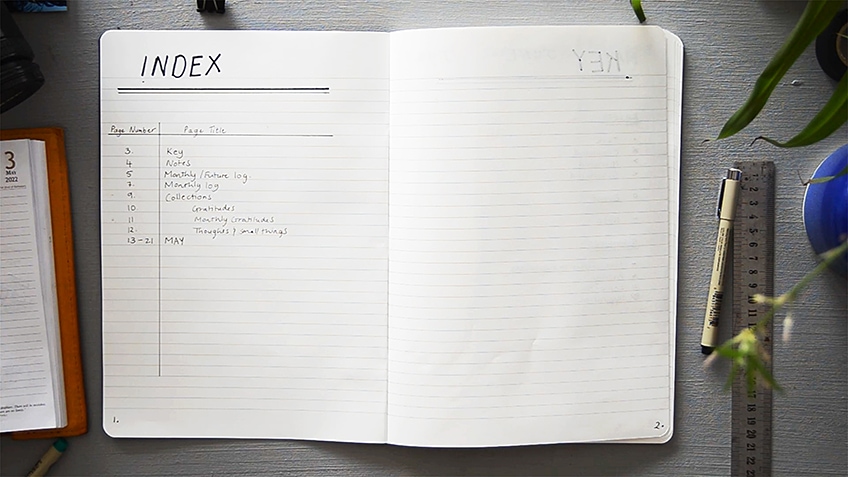 INDEX
Page Number Page Title
3. Key
4 Notes
5 Monthly/Future log.
7. Monthly log
9. Collections
10 Gratitudes
11 Monthly Gratitudes
12. Thoughts & small things
13-21 MAY
1.
KEY
2.
3
MAY
2022